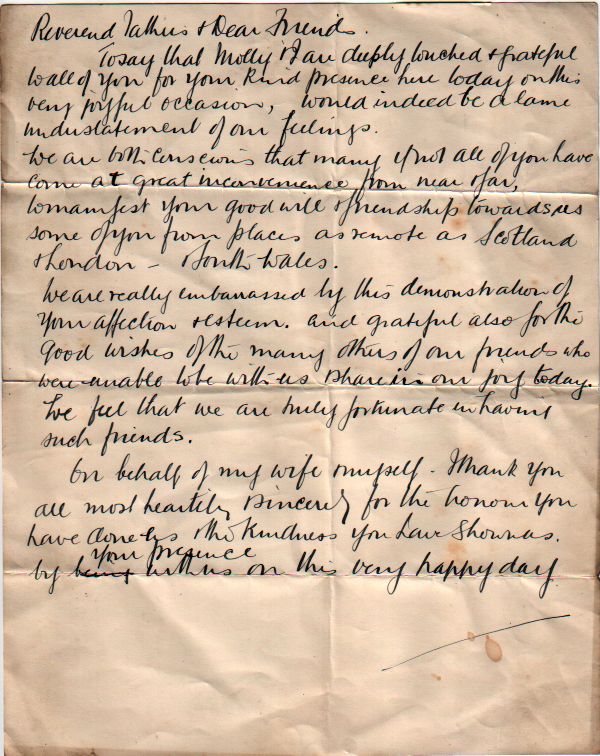 Reverend Fathers & Dear Friends.
To say that Molly & I are deeply touched & grateful
to all of you for your kind presence here today on this
very joyful occasion, would indeed be a lame
understatement of our feelings.
We are both conscious that many if not all of you have
come at great inconvenience from near & far,
to manifest your good will & friendship towards us
some of you from places as remote as Scotland
& London – & South Wales.
We are really embarrassed by this demonstration of
your affection & esteem. and grateful also for the
good wishes of the many others of our friends who
were unable to be with us & share in our joy today.
We feel that we are truly fortunate in having
such friends.
On behalf of my wife & myself - Thank you
all most heartily & sincerely for the honour you
have done us & the kindness you have shown us.
your presence
by being with us on this very happy day